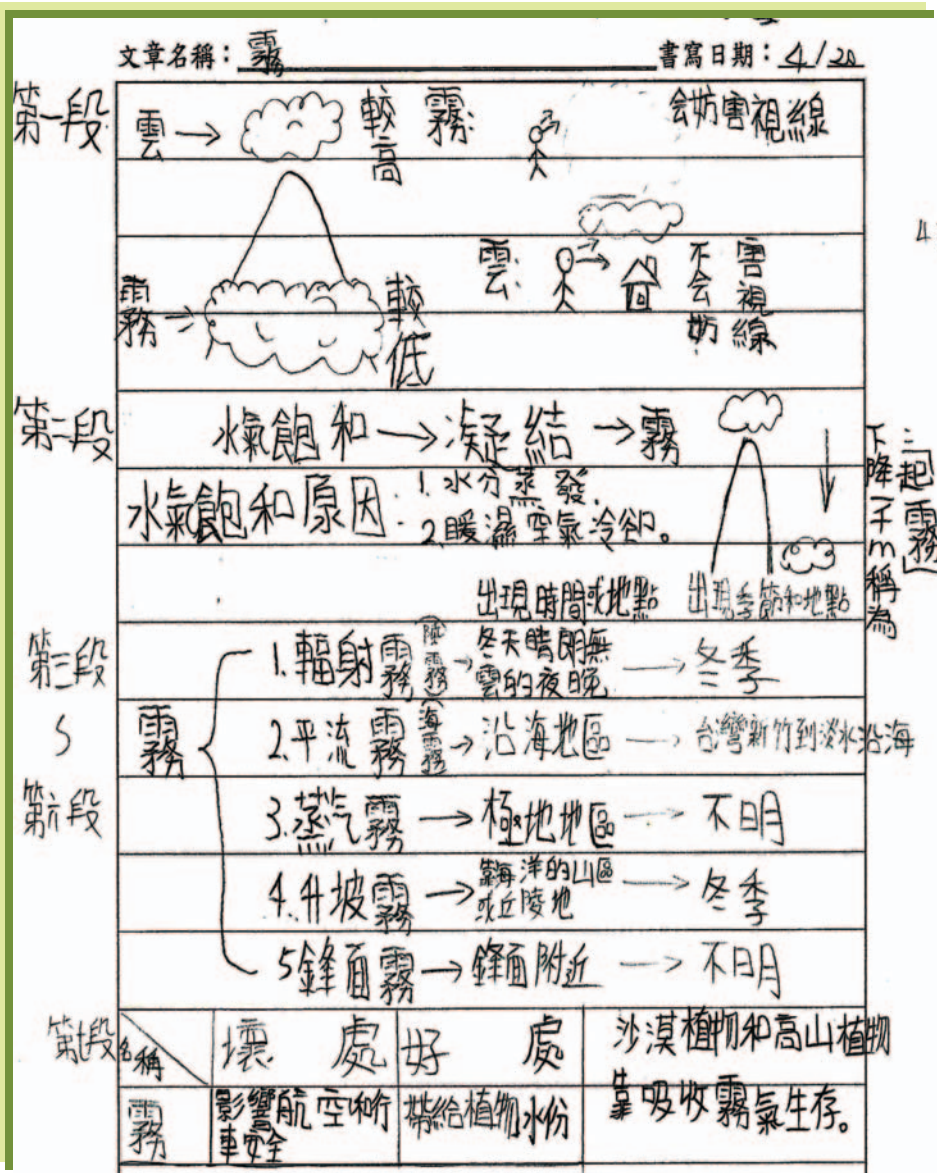 文章名稱：霧 書寫日期：4/20
第一段
雲→ 較高 霧: 会妨害視線
霧→ 較低 雲: 不会妨害視線
第二段
水氣飽和→凝結→霧
水氣飽和原因：1.水分蒸發.
2.暖濕空氣冷卻。
下降一千m稱為
「起霧」
出現時間或地點 出現季節和地點
第三段
〜
第六段
霧
1.輻射霧(陸霧)→冬天晴朗無雲的夜晚→冬季
2.平流霧(海霧)→沿海地區→台灣新竹到淡水沿海
3.蒸汽霧→極地地區→不明
4.升坡霧→靠海洋的山區或丘陵地→冬季
5鋒面霧→鋒面附近→不明
第七段
名稱 壞處 好處 沙漠植物和高山植物
霧 影響航空和行車安全 帶給植物水份 靠吸收霧氣生存。